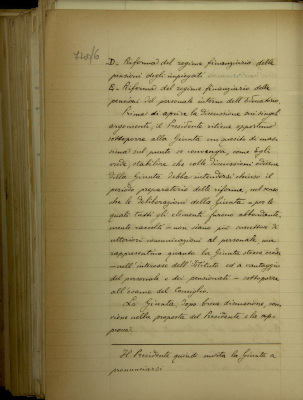 D. Riforma del regime finanziario delle
pensioni degli impiegati.
E. Riforma del regime finanziario delle
pensioni del personale interno dell'
Prima di aprire la discussione sui singoli
argomenti, il Presidente ritiene opportuno
sottoporre alla Giunta una questione di mas-
sima sul punto se convenga, come egli
crede, stabilire che colle discussioni odierne
della Giunta debba intendersi chiuso il
periodo preparatorio delle riforme, nel senso
che le deliberazioni della Giunta - per le
quali tutti gli elementi furono abbondante-
mente raccolti e non siano più
ulteriori comunicazioni al personale, ma
rappresentino quanto la Giunta stessa crede
- nell'interesse dell'Istituto ed a vantaggio
del personale e dei pensionati - sottoporre
all'esame del Consiglio.
La Giunta, dopo breve discussione, con-
viene nella proposta del Presidente e la ap-
prova.
Il Presidente quindi invita la Giunta a
pronunciarsi